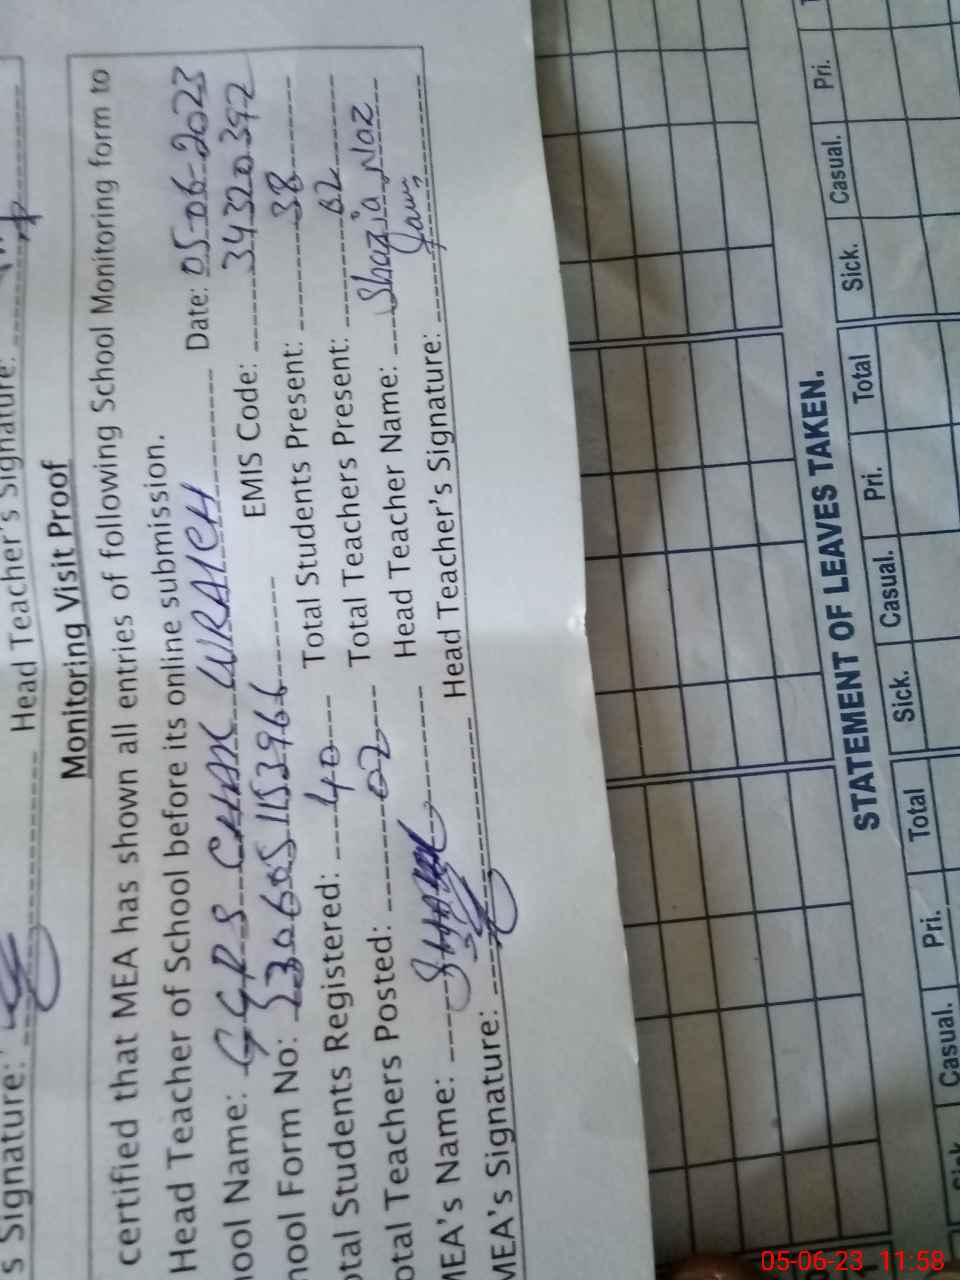 s Signature: Head Teacher's Signature:
Monitoring Visit Proof
certified that MEA has shown all entries of following School Monitoring form to
Head Teacher of School before its online submission.
hool Name: GGPS CHAK WRAICH Date: 05-06-2023
hool Form No: EMIS Code: 34320392
otal Students Registered: 40 Total Students Present: 38
otal Teachers Posted: 02 Total Teachers Present: 02
MEA's Name: Head Teacher Name: Shazia Naz
MEA's Signature: Head Teacher's Signature:
STATEMENT OF LEAVES TAKEN.
Sick Casual. Pri. Total Sick. Casual. Pri. Total Sick. Casual. Pri.
05-06-23 11:58